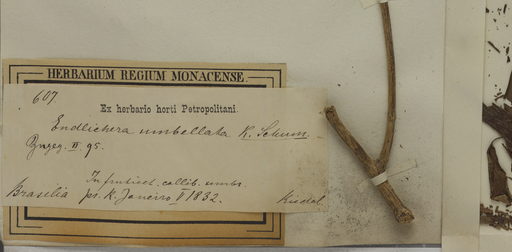 HERBARIUM REGIUM MONACENSE
607.
Ex herbario horti Petropolitani.
Endlichera umbellata K. Schum.
II 95.
In fruticet. collib. umbr.
Brasilia pr. R. Janeiro V 1832. Riedel